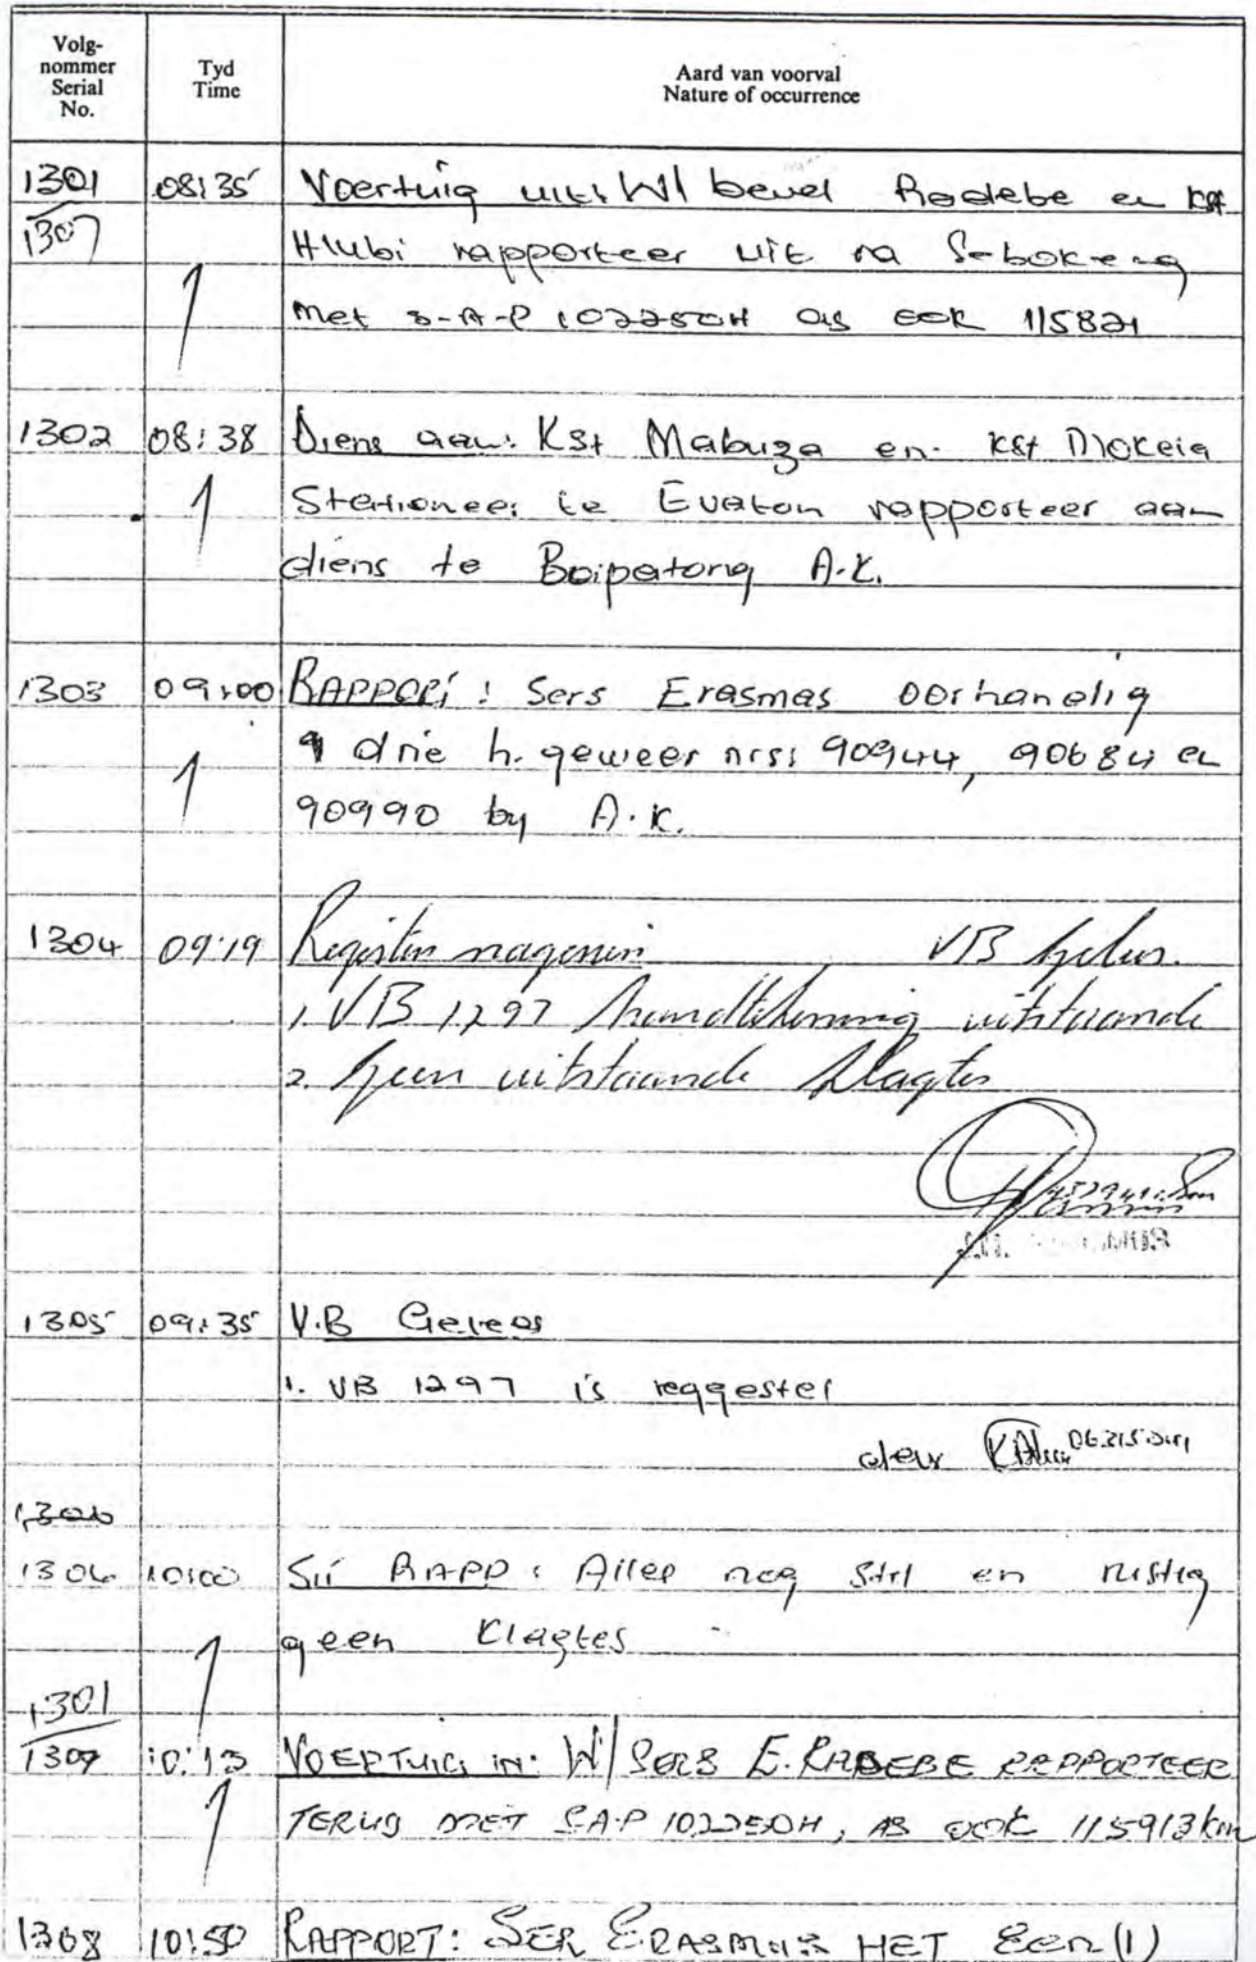 Volg-
nommer
Serial
No.
Tyd
Time
Aard van voorval
Nature of occurrence
1301
1307
08:35 Voertuig uit: W/ bevel Radebe en Kst
Hlubi rapporteer uit na Sebokeng
met S-A-P 102250H as ook 115821
1302 08:38 Diens aan: Kst Mabuza en Kst Mokeia
Stationeer te Evaton rapporteer aan
diens te Boipatong A.K.
1303 09:00 RAPPORT: Sers Erasmas oorhandig
drie h. geweer nrs: 90944, 90684 en
90990 by A.K.
1304 09:19 Registers nagesien VB gelees.
1. VB 1297 handtekening uitstaande
2. Geen uitstaande klagtes
1305 09:35 V.B Gelees
1. VB 1297 is reggestel
deur
1306
1306 10:00 Sit RAPP: Alles nog stil en rustig
geen klagtes
1301
1307 10:13 VOERTUIG IN: W/SERS E. RADEBE RAPPORTEER
TERUG MET S.A.P 102250H, AS OOK 115913km
1308 10:50 RAPPORT: SER ERASMUS HET Een (1)